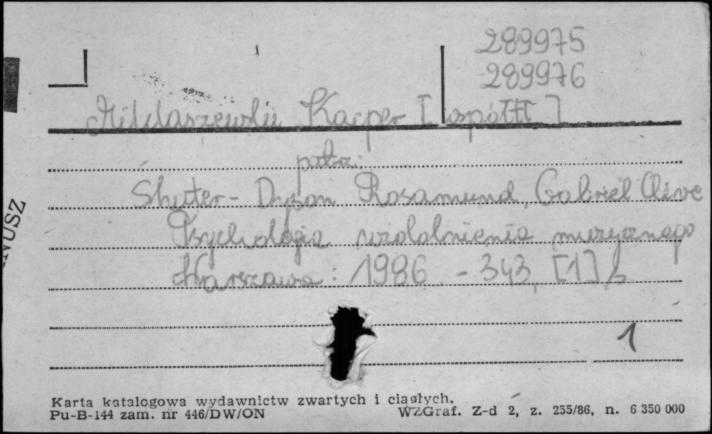 289975
289976
Miklaszewski Kacper [współtł]
patrz:
Shuter-Dyson Rosamund, Gabriel Clive
Psychologia uzdolnienia muzycznego
Warszawa: 1986. - 343, [1] s
1
NUSZ
Karta katalogowa wydawnictw zwartych i ciągłych.
Pu-B-144 zam. nr 446/DW/ON WZGraf. Z-d 2, z. 255/86, n. 6 350 000